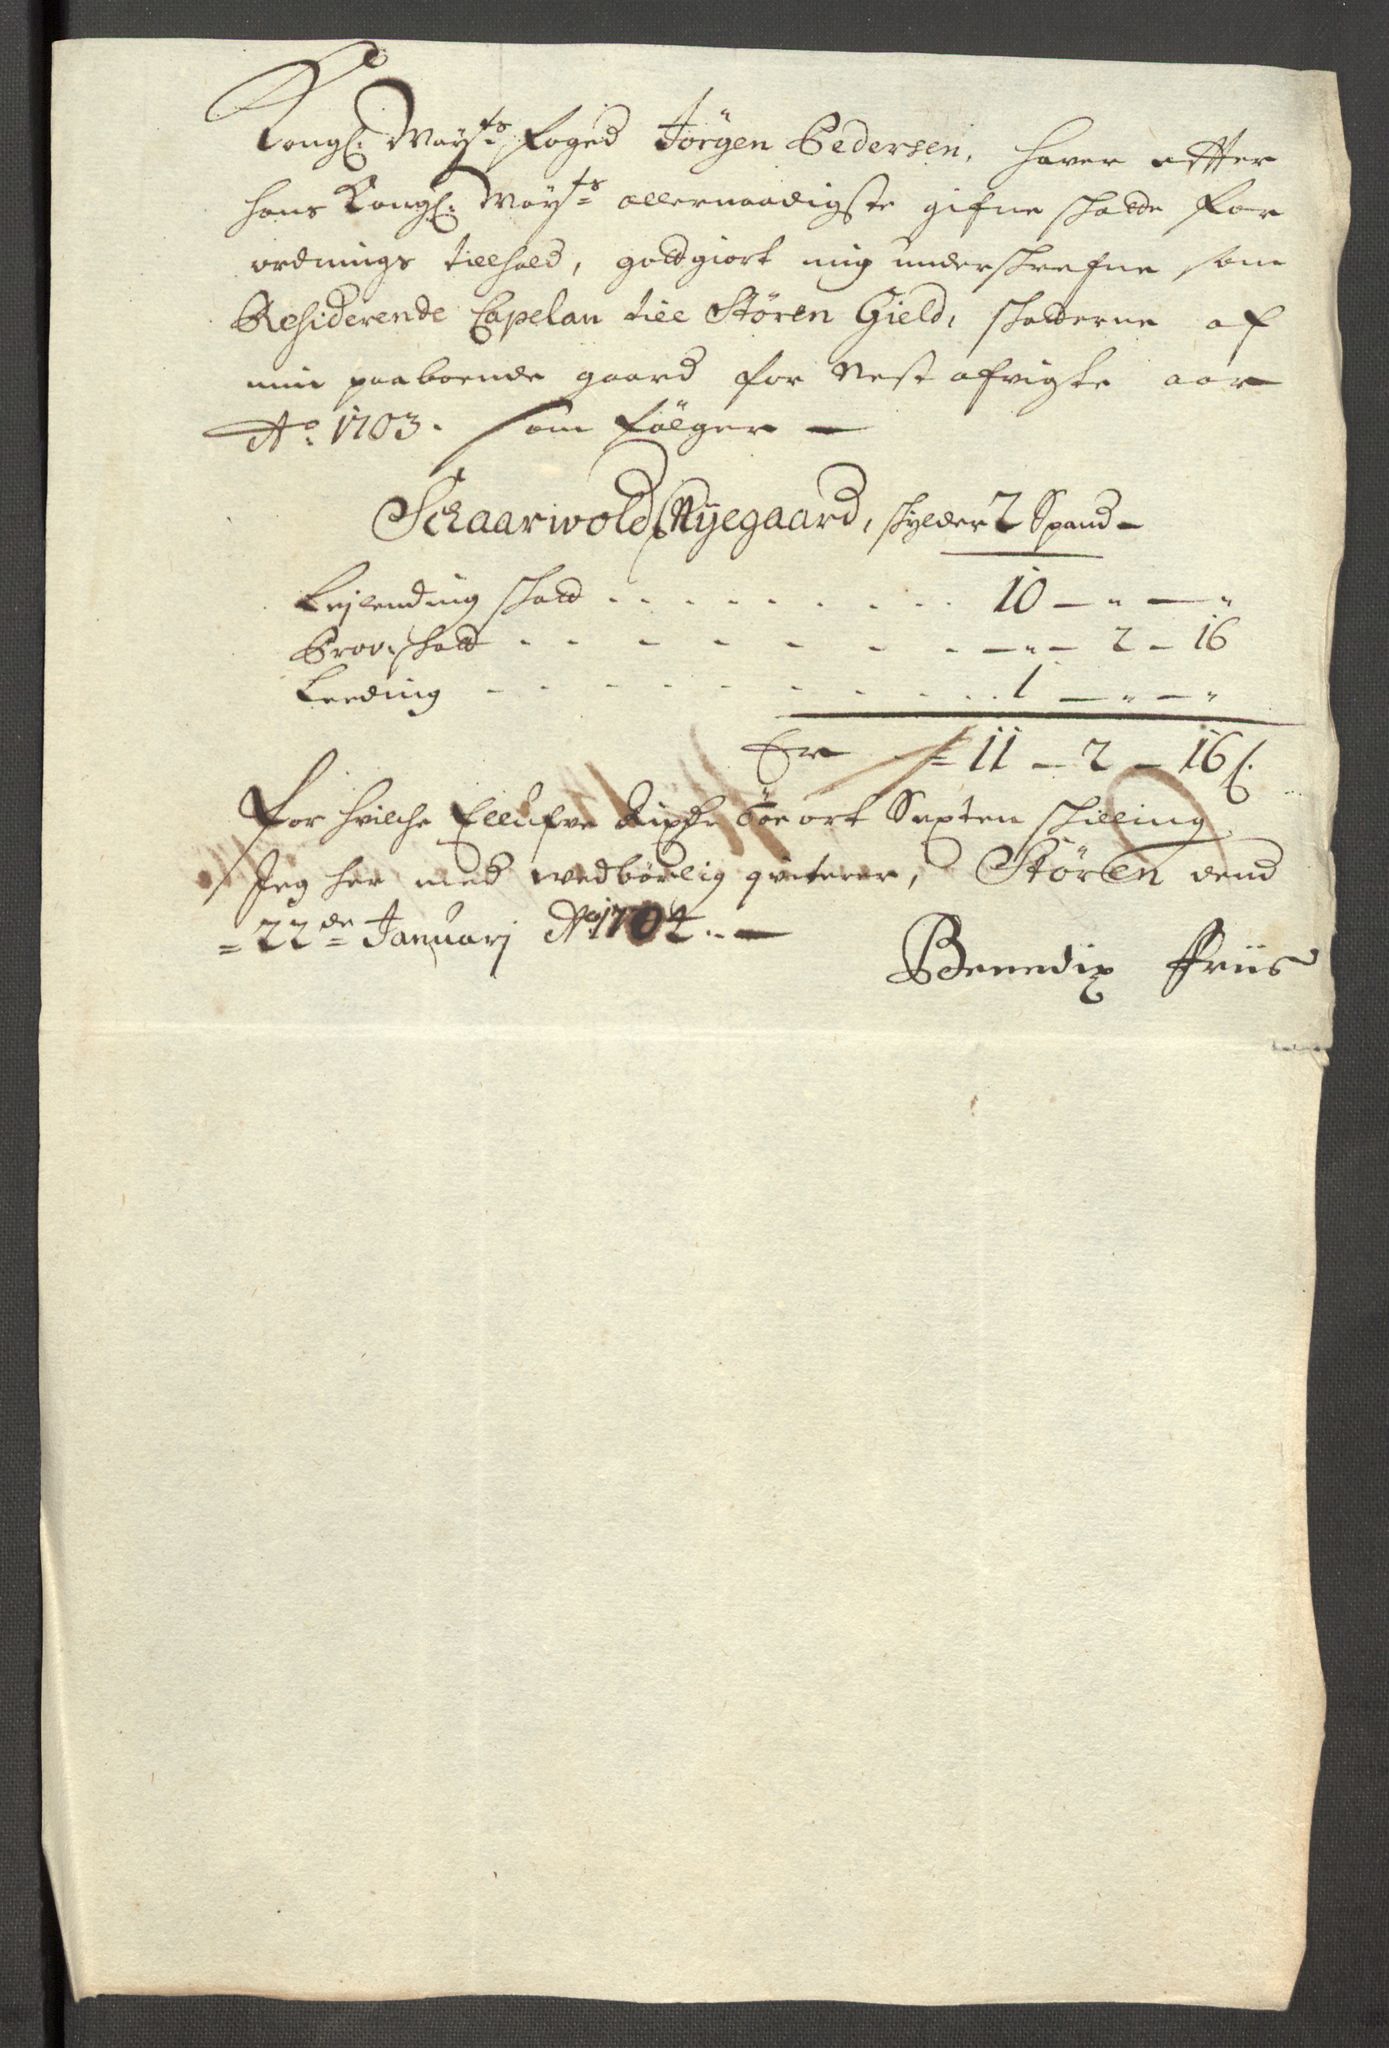 Kongl: May:ts foged Jörgen Pedersen, haver effter
hans Kongl: May:ts allernaadigste gifne skatte for
ordnings tillhold, godtgiort mig underskrefne som
Residerende Capelan till Stören Gield, skatterne af
min paaboende gaard for nest afvigte aar
Ao: 1703. som fölger —
Schaarwold Nyegaard, skylder 2 Spand —
Leylending skatt . . . . . . . . . 10 — " — "
Prov: skatt . . . . . . . . — " — 2 — 16
Leeding . . . . . . . . . . 1 — " — "
Er = 11 — 2 — 16 s.
For hvilche Ellufve Rixdr Toe ort Sexten skilling
Jeg her med wedbörlig qviterer, Stören dend
= 22de Januarj Ao 1704. —
Benedix Friis